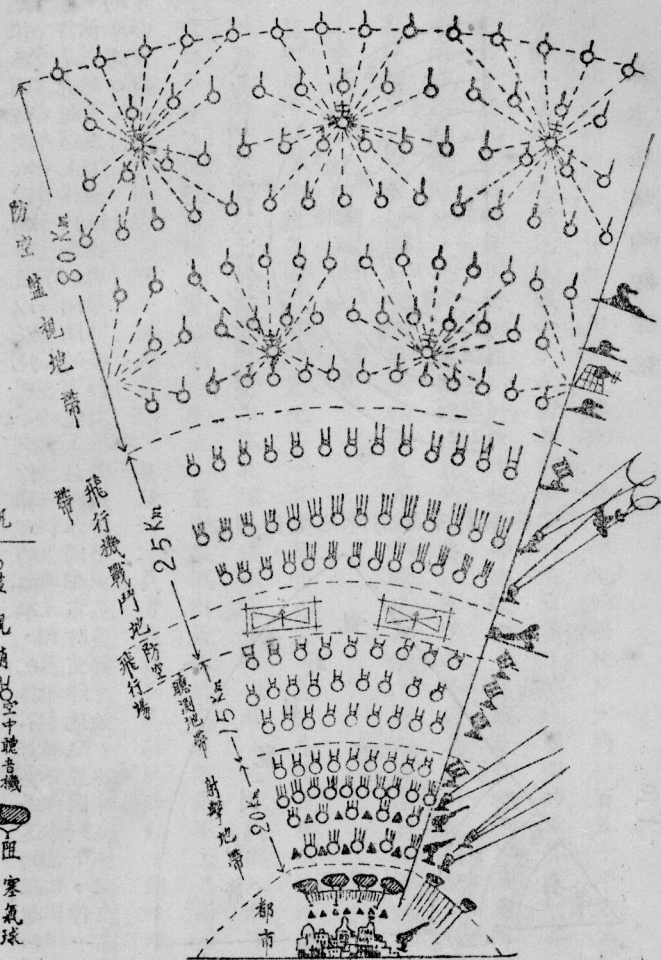 防空監視地帶
80Km
飛行機戰鬥地帶
25Km
防空飛行場
聽測地帶
15Km
射擊地帶
20Km
都市
空中聽音機
阻塞氣球